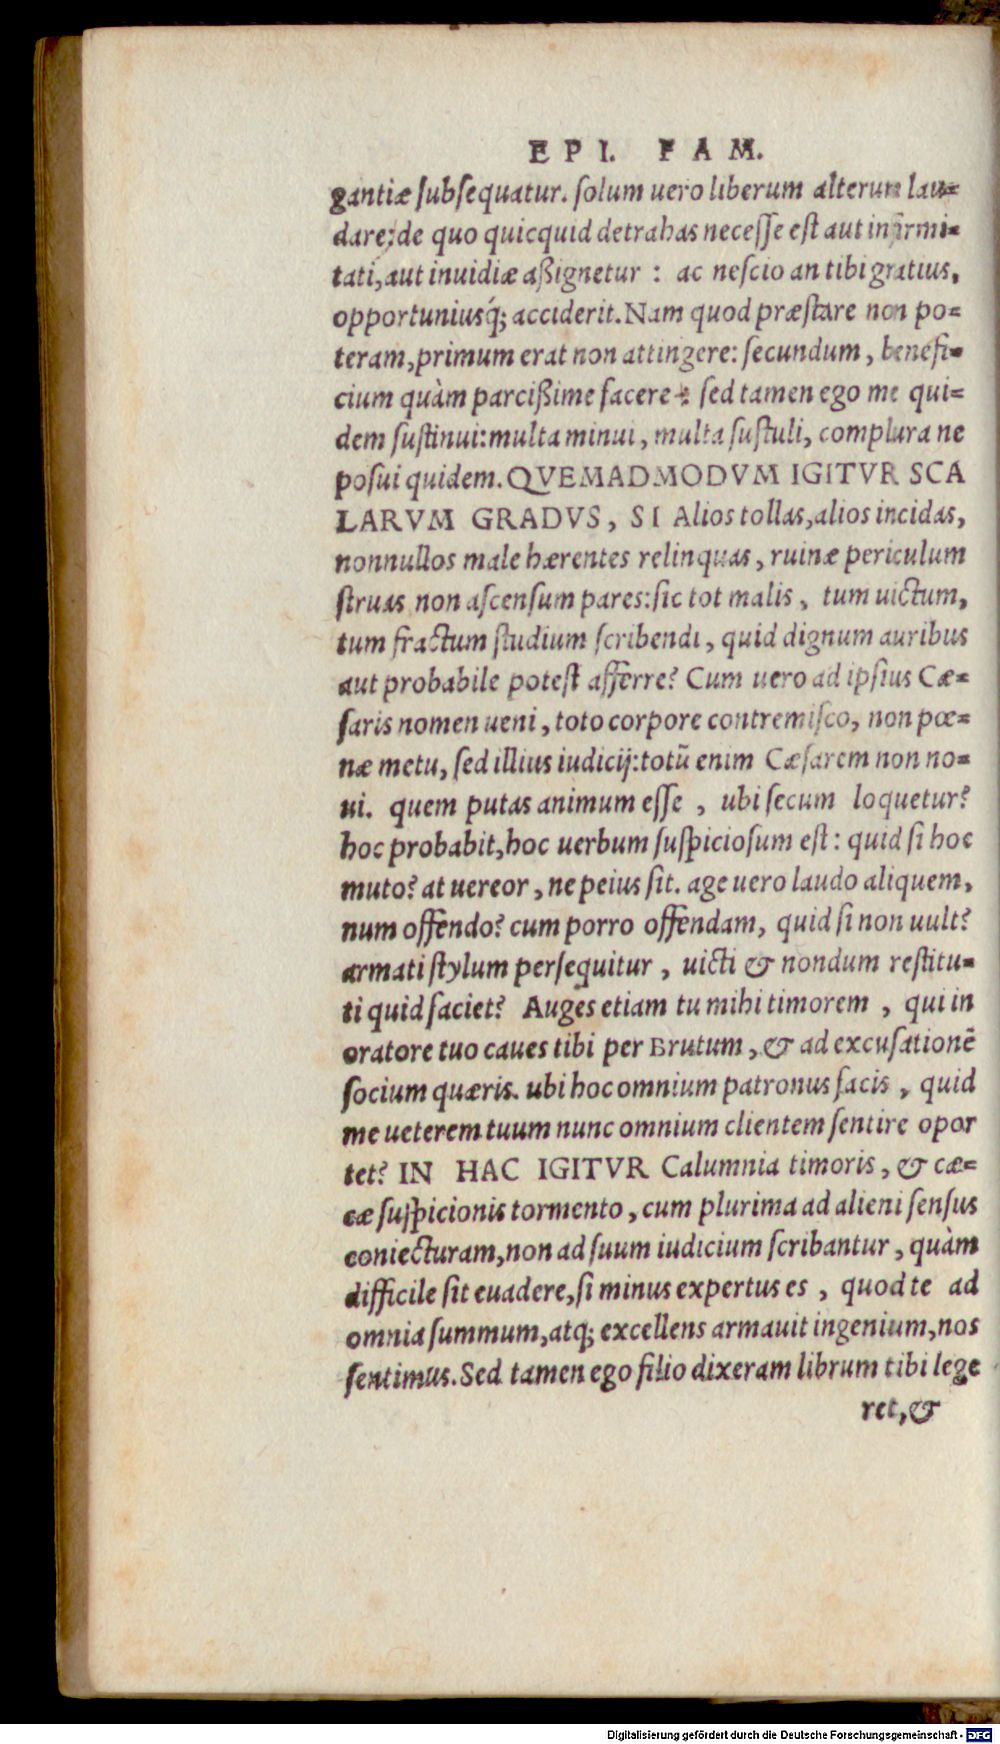 EPI. FAM.
gantiæ ſubſequatur. ſolum uero liberum alterum lau=
dare; de quo quicquid detrahas neceſſe eſt aut infirmi=
tati, aut inuidiæ aßignetur : ac neſcio an tibi gratius,
opportuniusq́; acciderit. Nam quod præſtare non po=
teram, primum erat non attingere: ſecundum, benefi=
cium quàm parcißime facere : ſed tamen ego me qui=
dem ſuſtinui: multa minui, multa ſuſtuli, complura ne
poſui quidem. QVEMADMODVM IGITVR SCA
LARVM GRADVS, SI Alios tollas, alios incidas,
nonnullos male hærentes relinquas, ruinæ periculum
ſtruas non aſcenſum pares: ſic tot malis, tum uictum,
tum fractum ſtudium ſcribendi, quid dignum auribus
aut probabile poteſt afferre? Cum uero ad ipſius Cæ=
ſaris nomen ueni, toto corpore contremiſco, non pœ=
næ metu, ſed illius iudicij: totũ enim Cæſarem non no=
ui. quem putas animum eſſe, ubi ſecum loquetur?
hoc probabit, hoc uerbum ſuſpicioſum eſt: quid ſi hoc
muto? at uereor, ne peius ſit. age uero laudo aliquem,
num offendo? cum porro offendam, quid ſi non uult?
armati ſtylum perſequitur, uicti & nondum reſtitu=
ti quid faciet? Auges etiam tu mihi timorem, qui in
oratore tuo caues tibi per Brutum, & ad excuſationẽ
ſocium quæris. ubi hoc omnium patronus facis, quid
me ueterem tuum nunc omnium clientem ſentire opor
tet? IN HAC IGITVR Calumnia timoris, & cæ=
cæ ſuſpicionis tormento, cum plurima ad alieni ſenſus
coniecturam, non ad ſuum iudicium ſcribantur, quàm
difficile ſit euadere, ſi minus expertus es, quod te ad
omnia ſummum, atq; excellens armauit ingenium, nos
ſentimus. Sed tamen ego filio dixeram librum tibi lege
ret, &
Digitalisierung gefördert durch die Deutsche Forschungsgemeinschaft - DFG